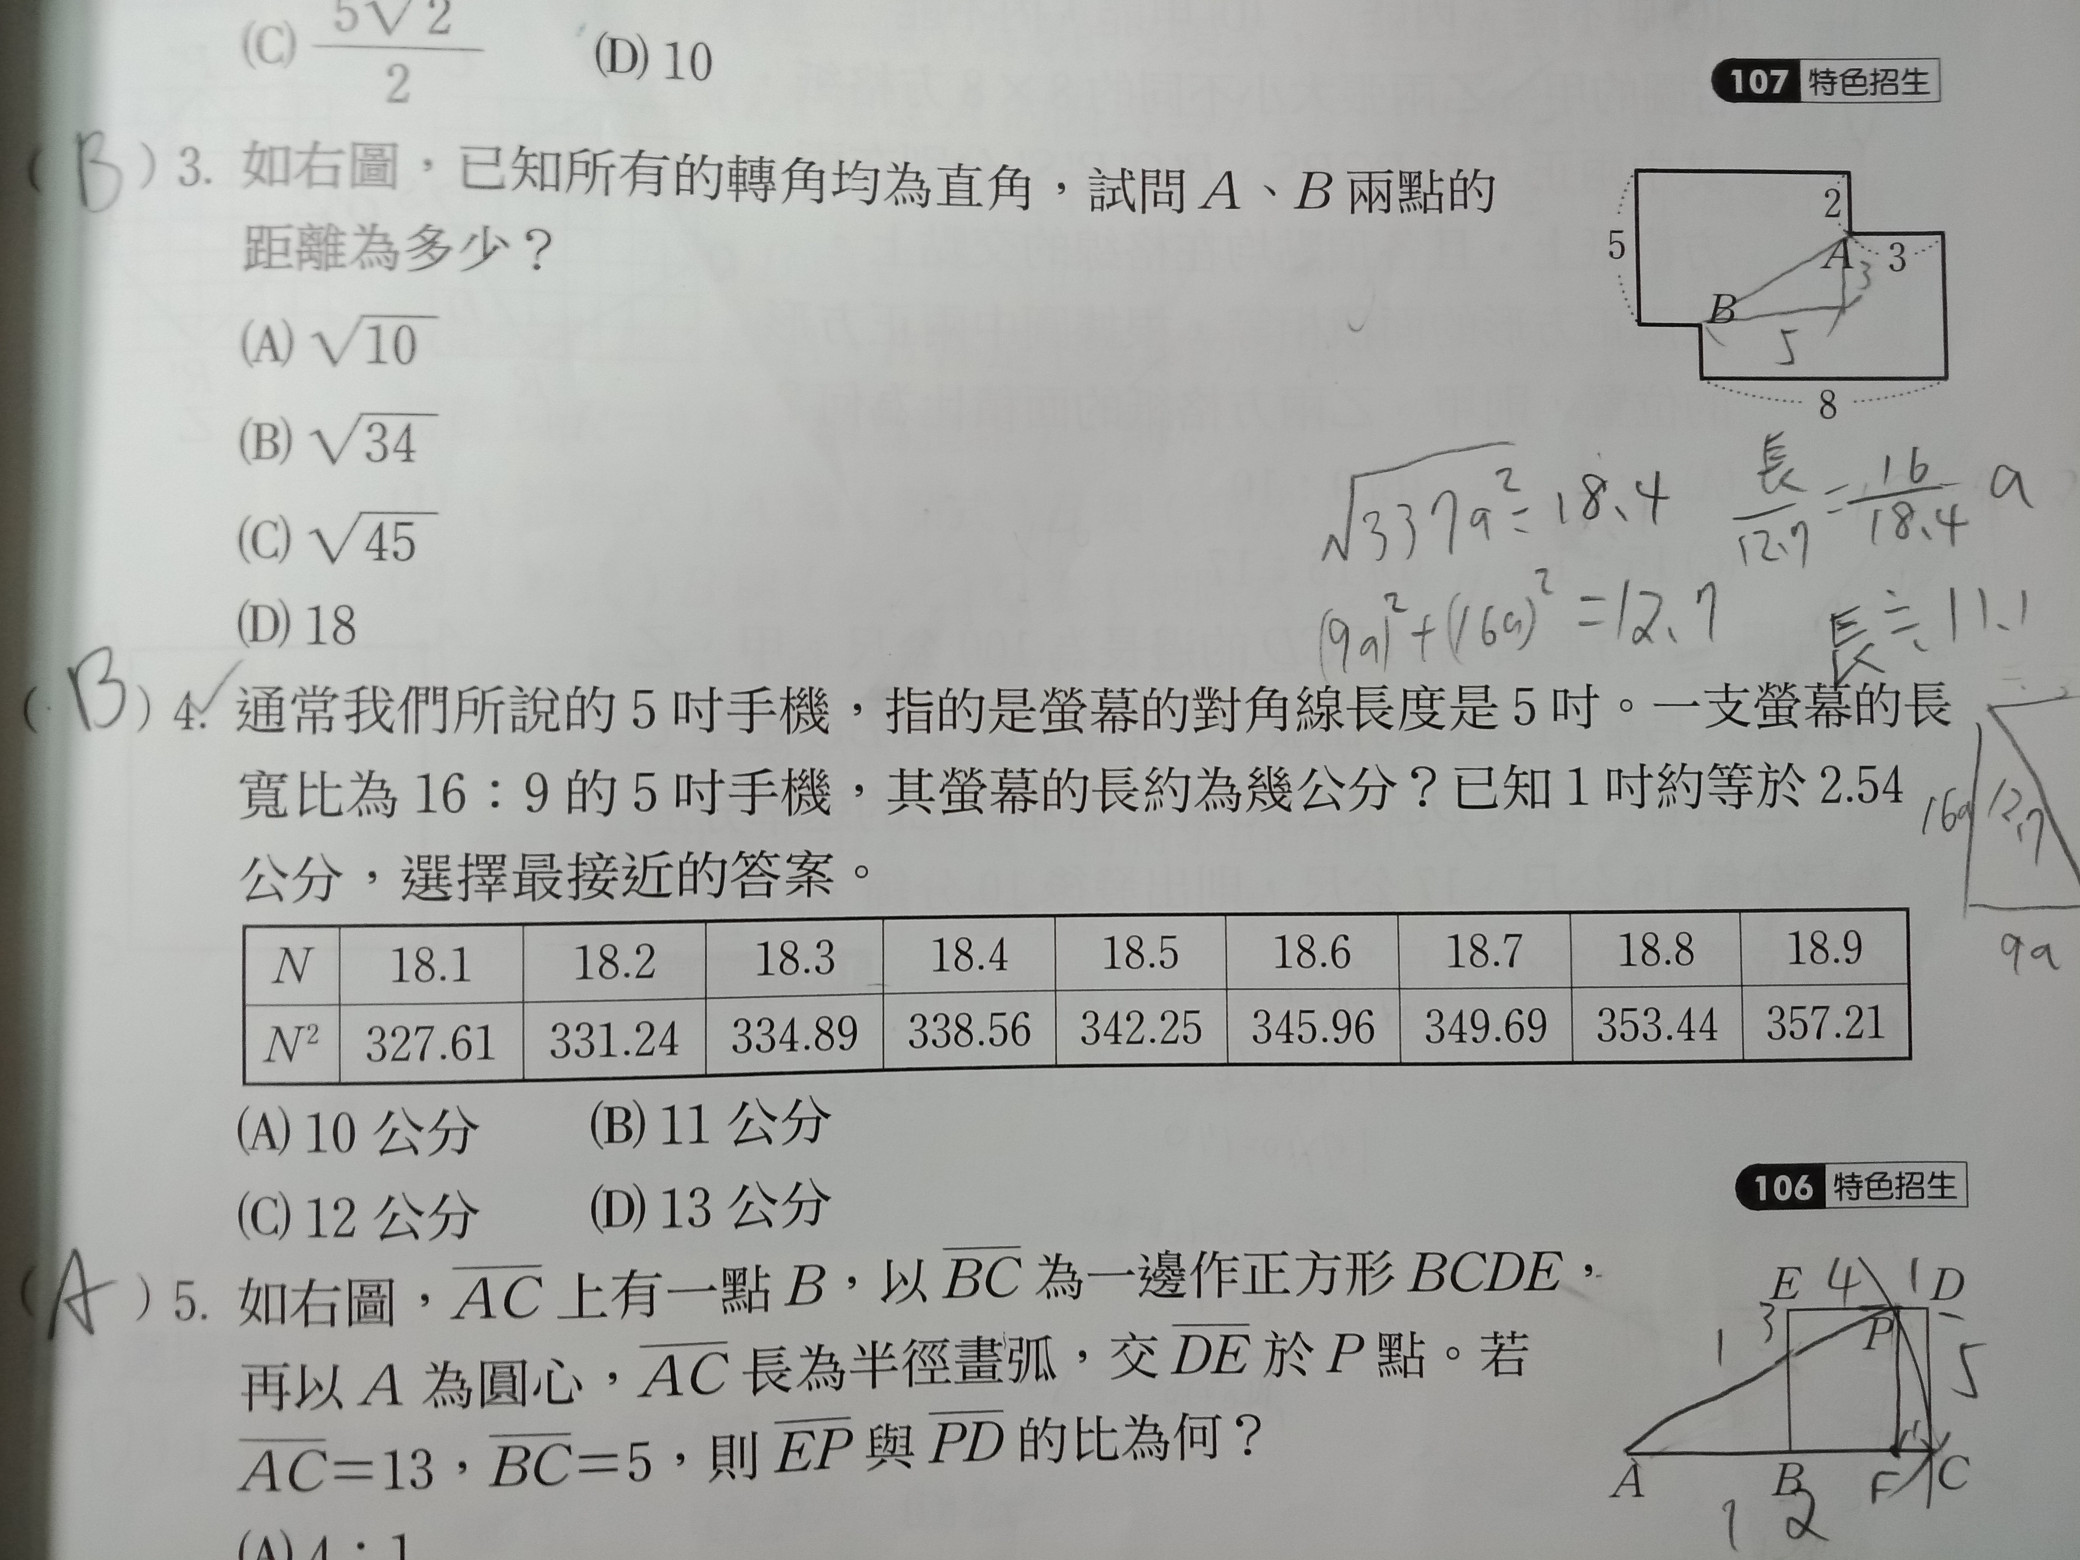 (C) 5√2/2 (D) 10
107 特色招生
(B) 3. 如右圖，已知所有的轉角均為直角，試問 A、B 兩點的
距離為多少？
(A) √10
(B) √34
(C) √45
(D) 18
5 2 A 3 3 B 5 8
√337a²=18.4 長/12.7=16/18.4 a
(9a)²+(16a)²=12.7 長≒11.1
(B) 4. 通常我們所說的 5 吋手機，指的是螢幕的對角線長度是 5 吋。一支螢幕的長
寬比為 16：9 的 5 吋手機，其螢幕的長約為幾公分？已知 1 吋約等於 2.54
公分，選擇最接近的答案。
16a 12.7 9a
N 18.1 18.2 18.3 18.4 18.5 18.6 18.7 18.8 18.9
N² 327.61 331.24 334.89 338.56 342.25 345.96 349.69 353.44 357.21
(A) 10 公分 (B) 11 公分
(C) 12 公分 (D) 13 公分
106 特色招生
(A) 5. 如右圖，AC 上有一點 B，以 BC 為一邊作正方形 BCDE，
再以 A 為圓心，AC 長為半徑畫弧，交 DE 於 P 點。若
AC=13，BC=5，則 EP 與 PD 的比為何？
E 4 1 D
1 3 P 5
A B F C
1 2
(A) 4：1